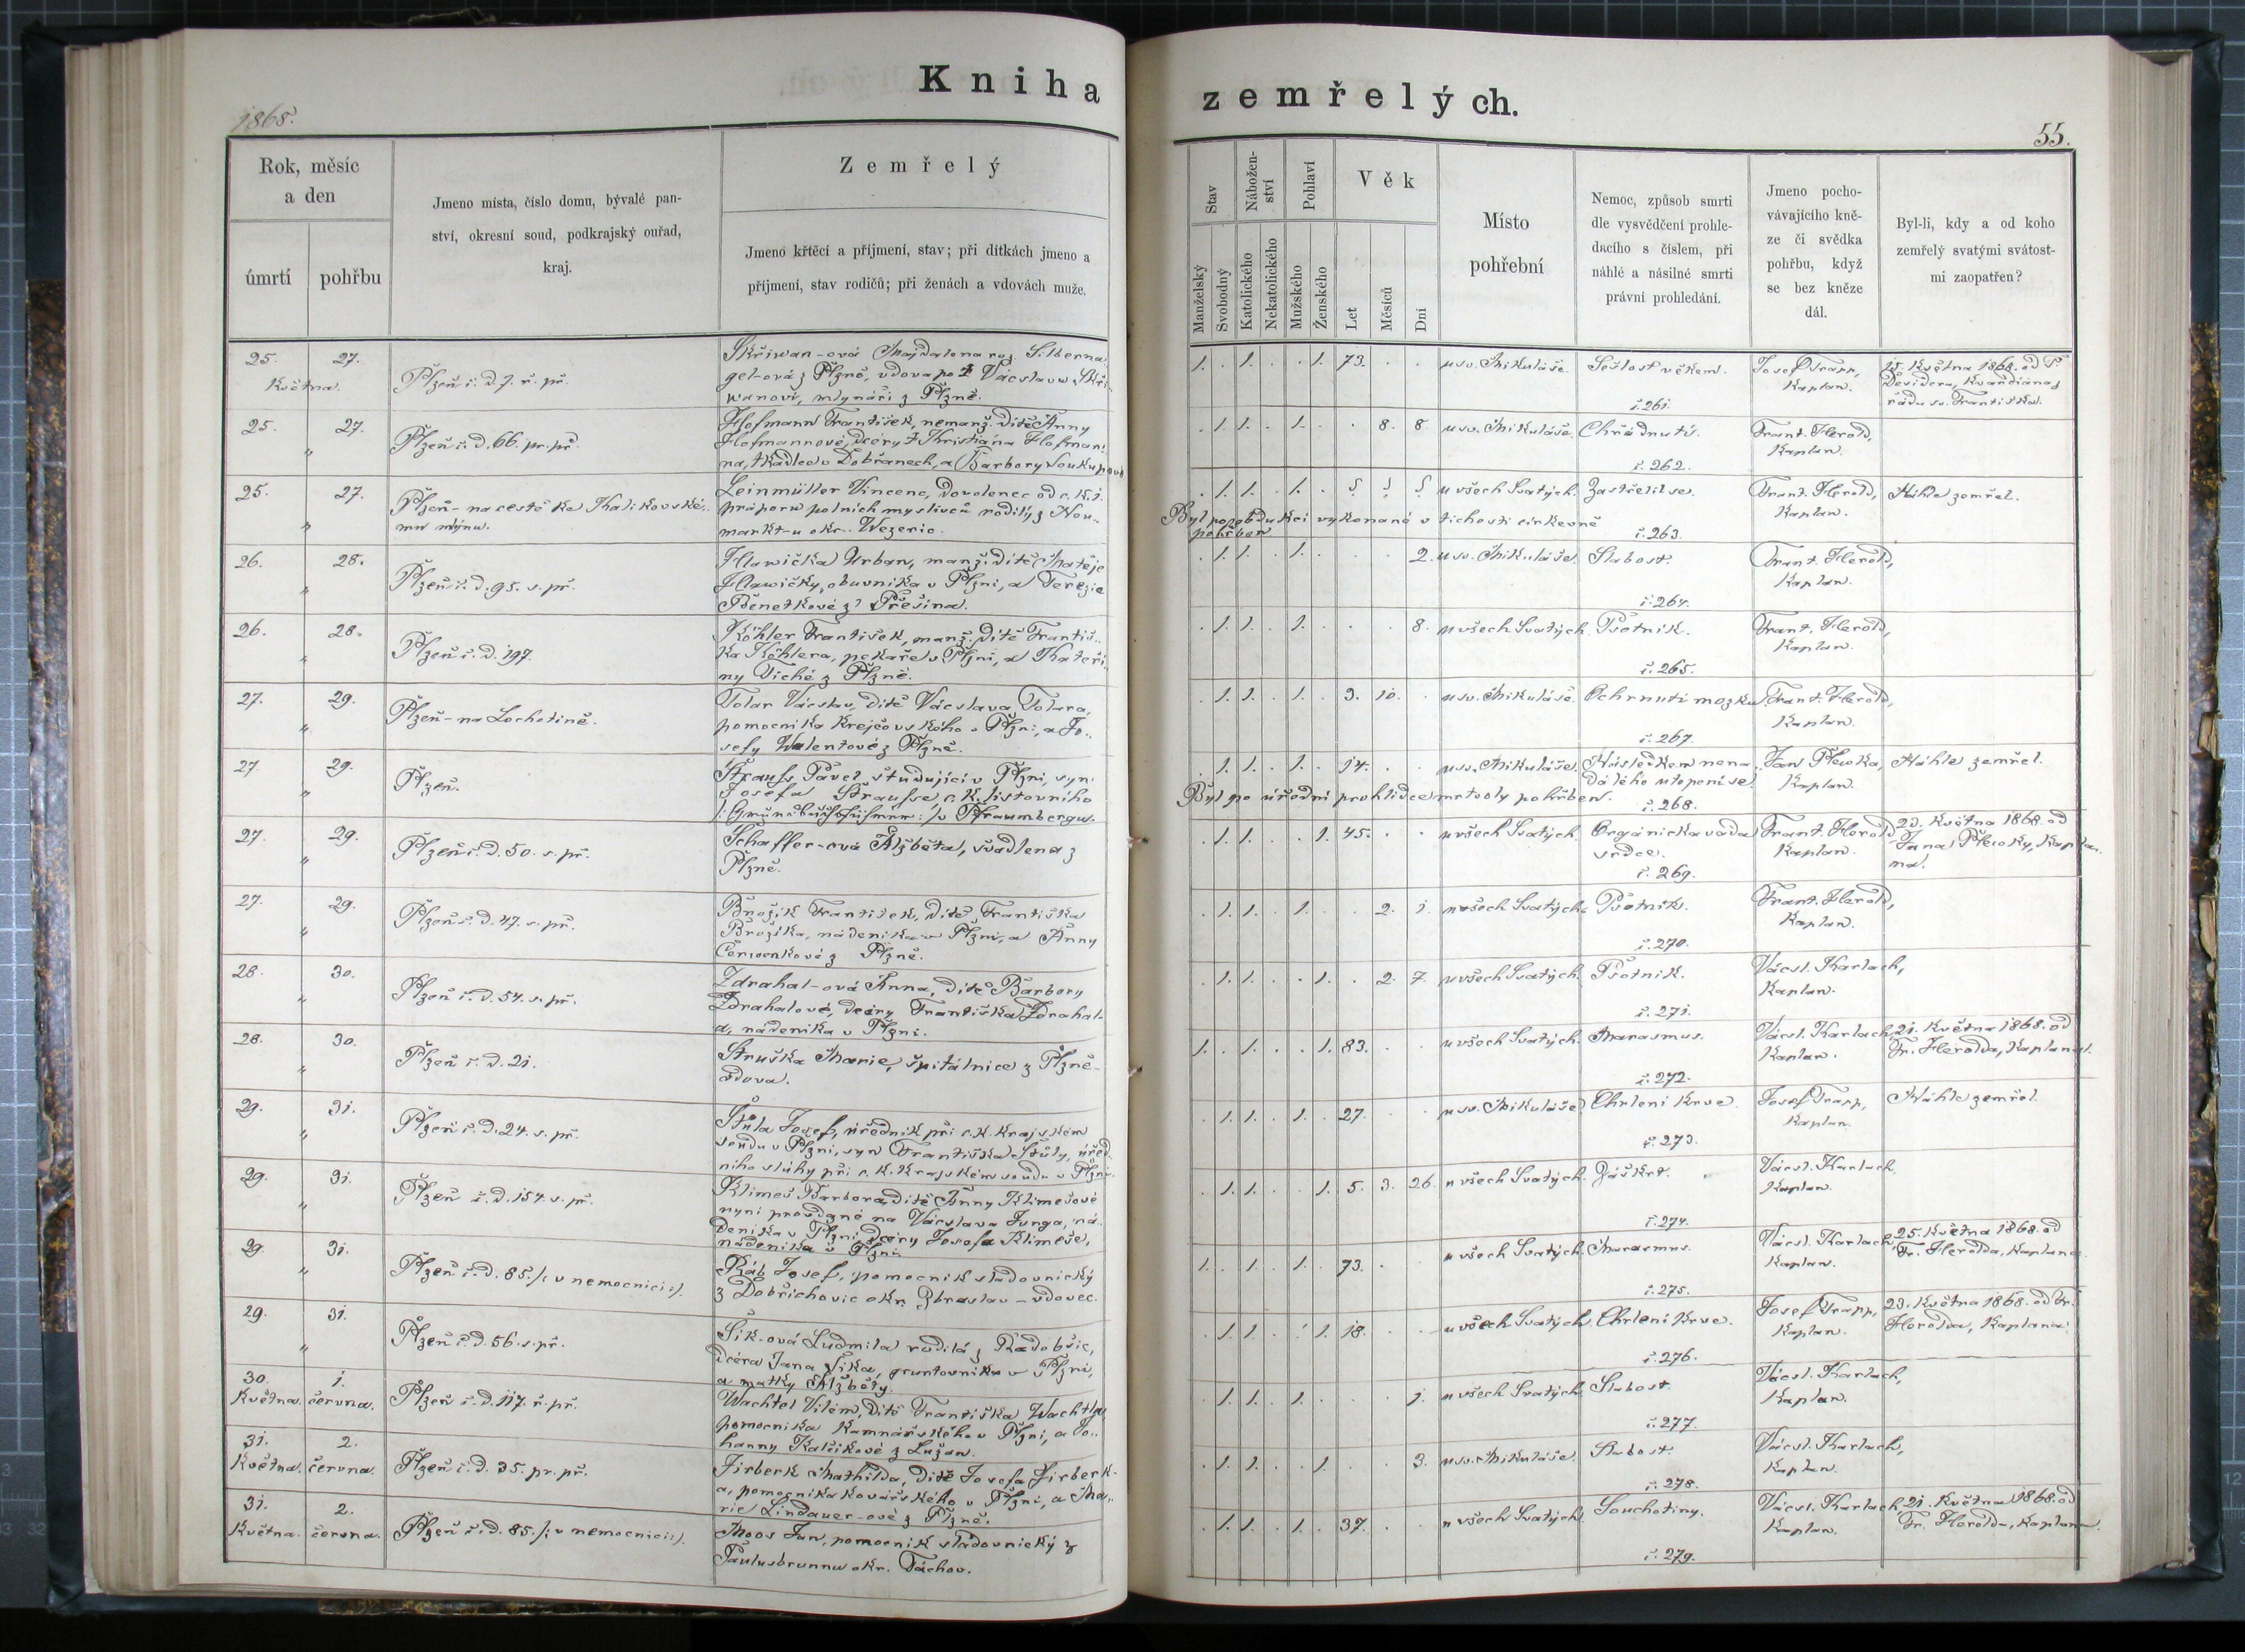 Kniha
zemřelých.
1868.
55.
Rok, měsíc
a den
úmrtí
pohřbu
Jmeno místa, číslo domu, bývalé pan-
ství, okresní soud, podkrajský ouřad,
kraj.
Zemřelý
Jmeno křtěcí a příjmení, stav; při dítkách jmeno a
příjmení, stav rodičů; při ženách a vdovách muže.
Stav
Manželský
Svobodný
Nábožen-
ství
Katolického
Nekatolického
Pohlaví
Mužského
Ženského
Věk
Let
Měsíců
Dní
Místo
pohřební
Nemoc, způsob smrti
dle vysvědčení prohle-
dacího s číslem, při
náhlé a násilné smrti
právní prohledání.
Jmeno pocho-
vávajícího kně-
ze či svědka
pohřbu, když
se bez kněze
dál.
Byl-li, kdy a od koho
zemřelý svatými svátost-
mi zaopatřen?
25. 27.
Května.
Plzeň č. d. 7. ř. př.
Skřiwan-ová Majdalena roz. Silberna
gel-ová z Plzně, vdova po † Václavu Skři-
wanovi, mlynáři z Plzně.
1. . 1. . . 1. 73. . .
u sv. Mikuláše.
Sešlost věkem.
č. 261.
Josef Trapp,
Kaplan.
15. Května 1868. od P.
Desidera, Kvardiána z
řádu sv. Františka.
25. 27.
"
Plzeň č. d. 66. pr. př.
Hofmann František, nemanž. dítě Anny
Hofmannové, dcery † Kristiána Hofman-
na, tkadlce v Dobřanech, a Barbory Soukupové
. 1. 1. . 1. . . 8. 8.
u sv. Mikuláše.
Chřadnutí.
č. 262.
Frant. Herold,
Kaplan.
25. 27.
"
Plzeň - na cestě ke Kalikovské-
mu mlýnu.
Leinmüller Vincenc, dovolenec od c. k. 1.
práporu polních myslivců rodilý z Neu-
markt-u okr. Wezeric.
. 1. 1. . 1. .
u všech Svatých.
Zastřelil se.
č. 263.
Frant. Herold,
Kaplan.
Náhle zemřel.
Byl po obdukci vykonané v tichosti církevně
pohřben.
26. 28.
"
Plzeň č. d. 95. s. př.
Hlawička Urban, manž. dítě Matěje
Hlawičky, obuvníka v Plzni, a Terezie
Benetkové z Přešína.
. 1. 1. . 1. . . . 2.
u sv. Mikuláše.
Slabost.
č. 264.
Frant. Herold,
Kaplan.
26. 28.
"
Plzeň č. d. 197.
Köhler František, manž. dítě Františ-
ka Köhlera, pekaře v Plzni, a Kateři-
ny Tiché z Plzně.
. 1. 1. . 1. . . . 8.
u všech Svatých.
Psotník.
č. 265.
Frant. Herold,
Kaplan.
27. 29.
"
Plzeň - na Lochotíně.
Tolar Václav, dítě Václava Tolara,
pomocníka krejčovského v Plzni, a Jo-
sefy Walentové z Plzně.
. 1. 1. . 1. . 3. 10. .
u sv. Mikuláše.
Ochrnutí mozku.
č. 267.
Frant. Herold,
Kaplan.
27. 29.
"
Plzeň.
Straufs Pavel, študující v Plzni, syn
Josefa Straufse, c. k. listovního
v Pfraumbergu.
. 1. 1. . 1. . 14. . .
u sv. Mikuláše.
Následkem nena-
dálého utopení se.
č. 268.
Jan Plewka,
Kaplan.
Náhle zemřel.
Byl po úřední prohlídce mrtvoly pohřben.
27. 29.
"
Plzeň č. d. 50. s. př.
Schaffer-ová Alžběta, švadlena z
Plzně.
. 1. 1. . . 1. 45. . .
u všech Svatých.
Orgánická vada
srdce.
č. 269.
Frant. Herold
Kaplan.
23. Května 1868. od
Jana Plewky, Kapla-
na.
27. 29.
"
Plzeň č. d. 47. s. př.
Brožík František, dítě Františka
Brožíka, nádeníka v Plzni, a Anny
Červenkové z Plzně.
. 1. 1. . 1. . . 2. 1.
u všech Svatých.
Psotník.
č. 270.
Frant. Herold,
Kaplan.
28. 30.
"
Plzeň č. d. 54. s. př.
Zdrahal-ová Anna, dítě Barbory
Zdrahalové, dcery Františka Zdrahal-
a, nádeníka v Plzni.
. 1. 1. . . 1. . 2. 7.
u všech Svatých.
Psotník.
č. 271.
Václ. Karlach,
Kaplan.
28. 30.
"
Plzeň č. d. 21.
Struška Marie, špitálnice z Plzně-
vdova.
1. . 1. . . 1. 83. . .
u všech Svatých.
Marasmus.
č. 272.
Václ. Karlach
Kaplan.
21. Května 1868. od
Fr. Herolda, Kaplana.
29. 31.
"
Plzeň č. d. 24. s. př.
Štůla Josef, úředník při c. k. krajském
soudu v Plzni, syn Františka Štůly, úřed-
ního sluhy při c. k. krajském soudu v Plzni.
. 1. 1. . 1. . 27. . .
u sv. Mikuláše
Chrlení krve.
č. 273.
Josef Trapp,
Kaplan.
Náhle zemřel.
29. 31.
"
Plzeň č. d. 154. s. př.
Klimeš Barbora, dítě Anny Klimešové
nyní provdané na Václava Junga, ná-
deníka v Plzni, dcery Josefa Klimeše,
nádeníka v Plzni.
. 1. 1. . . 1. 5. 3. 26.
u všech Svatých.
Záškrt.
č. 274.
Václ. Karlach,
Kaplan.
29. 31.
"
Plzeň č. d. 85. /: v nemocnici :/.
Ráb Josef, pomocník sladovnický
z Dobřichovic okr. Zbraslav - vdovec.
1. . 1. . 1. . 73. . .
u všech Svatých.
Marasmus.
č. 275.
Václ. Karlach,
Kaplan.
25. Května 1868. od
Fr. Herolda, Kaplana.
29. 31.
"
Plzeň č. d. 56. s. př.
Šik-ová Ludmila rodilá z Radobčic,
dcera Jana Šika, gruntovníka v Plzni,
a matky Alžběty.
. 1. 1. . . 1. 18. . .
u všech Svatých.
Chrlení krve.
č. 276.
Josef Trapp,
Kaplan.
23. Května 1868. od Fr.
Herolda, Kaplana.
30. 1.
Května. června.
Plzeň č. d. 117. ř. př.
Wachtel Vilém, dítě Františka Wachtla,
pomocníka kamnářského v Plzni, a Jo-
hanny Kalčíkové z Lužan.
. 1. 1. . 1. . . . 1.
u všech Svatých.
Slabost.
č. 277.
Václ. Karlach,
Kaplan.
31. 2.
Května. června.
Plzeň č. d. 35. pr. př.
Jirberk Mathilda, dítě Josefa Jirberk-
a, pomocníka kovářského v Plzni, a Ma-
rie Lindauer-ové z Plzně.
. 1. 1. . . 1. . . 3.
u sv. Mikuláše.
Slabost.
č. 278.
Václ. Karlach,
Kaplan.
31. 2.
Května. června.
Plzeň č. d. 85. /: v nemocnici :/.
Moos Jan, pomocník sladovnický z
Paulusbrunnu okr. Táchov.
. 1. 1. . 1. . 37. . .
u všech Svatých.
Souchotiny.
č. 279.
Václ. Karlach
Kaplan.
21. Května 1868. od
Fr. Herolda, Kaplana.